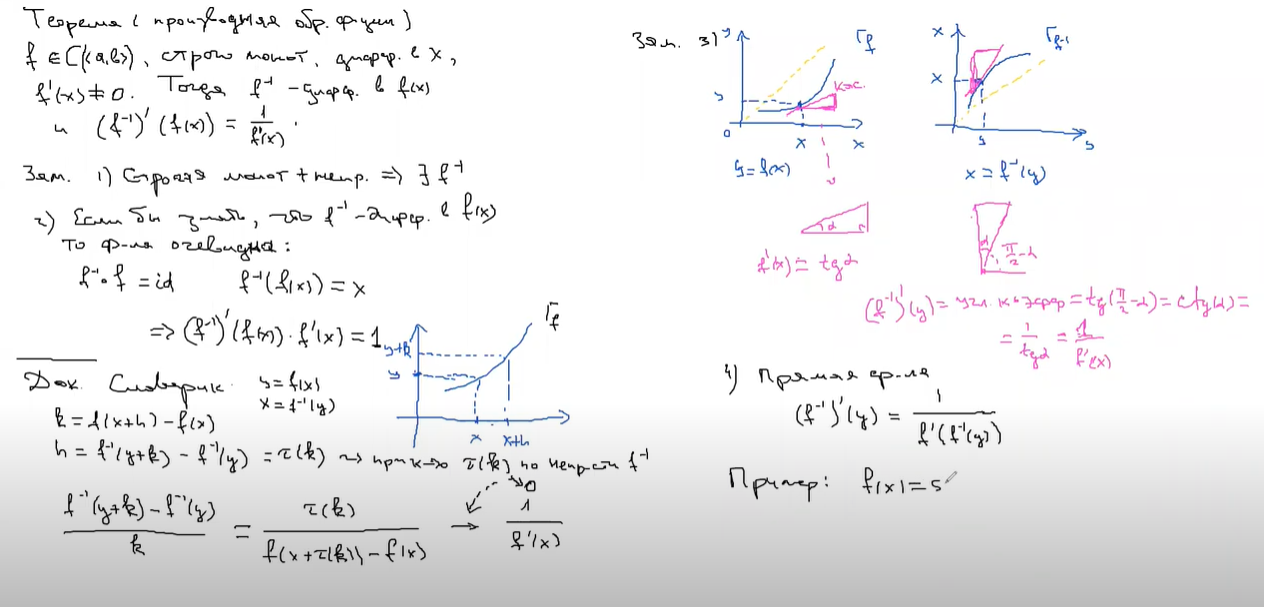 Теорема (производная обр. функции)
f ∈ C(<a,b>), строго монот., дифф. в x,
f'(x) ≠ 0. Тогда f⁻¹ – дифф. в f(x)
и (f⁻¹)'(f(x)) = 1/f'(x).
Зам. 1) Строгая монот + непр. => ∃ f⁻¹
2) Если бы знать, что f⁻¹ – дифф. в f(x)
то ф-ла очевидна:
f⁻¹∘f = id f⁻¹(f(x)) = x
=> (f⁻¹)'(f(x)) · f'(x) = 1
Док. Словарик. y = f(x)
x = f⁻¹(y)
k = f(x+h) – f(x)
h = f⁻¹(y+k) – f⁻¹(y) = τ(k) ⇝ при k→0 τ(k) по непр-сти f⁻¹
0
(f⁻¹(y+k) – f⁻¹(y))/k = τ(k)/(f(x+τ(k)) – f(x)) → 1/f'(x)
Γf
y+k
y
x x+h
Зам. 3)
y Γf
y
кас.
0 x x
y = f(x)
x Γf⁻¹
x
y y
x = f⁻¹(y)
α
f'(x) = tg α
α π/2 – α
(f⁻¹)'(y) = угл. к-т = tg(π/2 – α) = ctg(α) =
= 1/tg α = 1/f'(x)
4) Прямая ф-ла
(f⁻¹)'(y) = 1/f'(f⁻¹(y))
Пример: f(x) = s